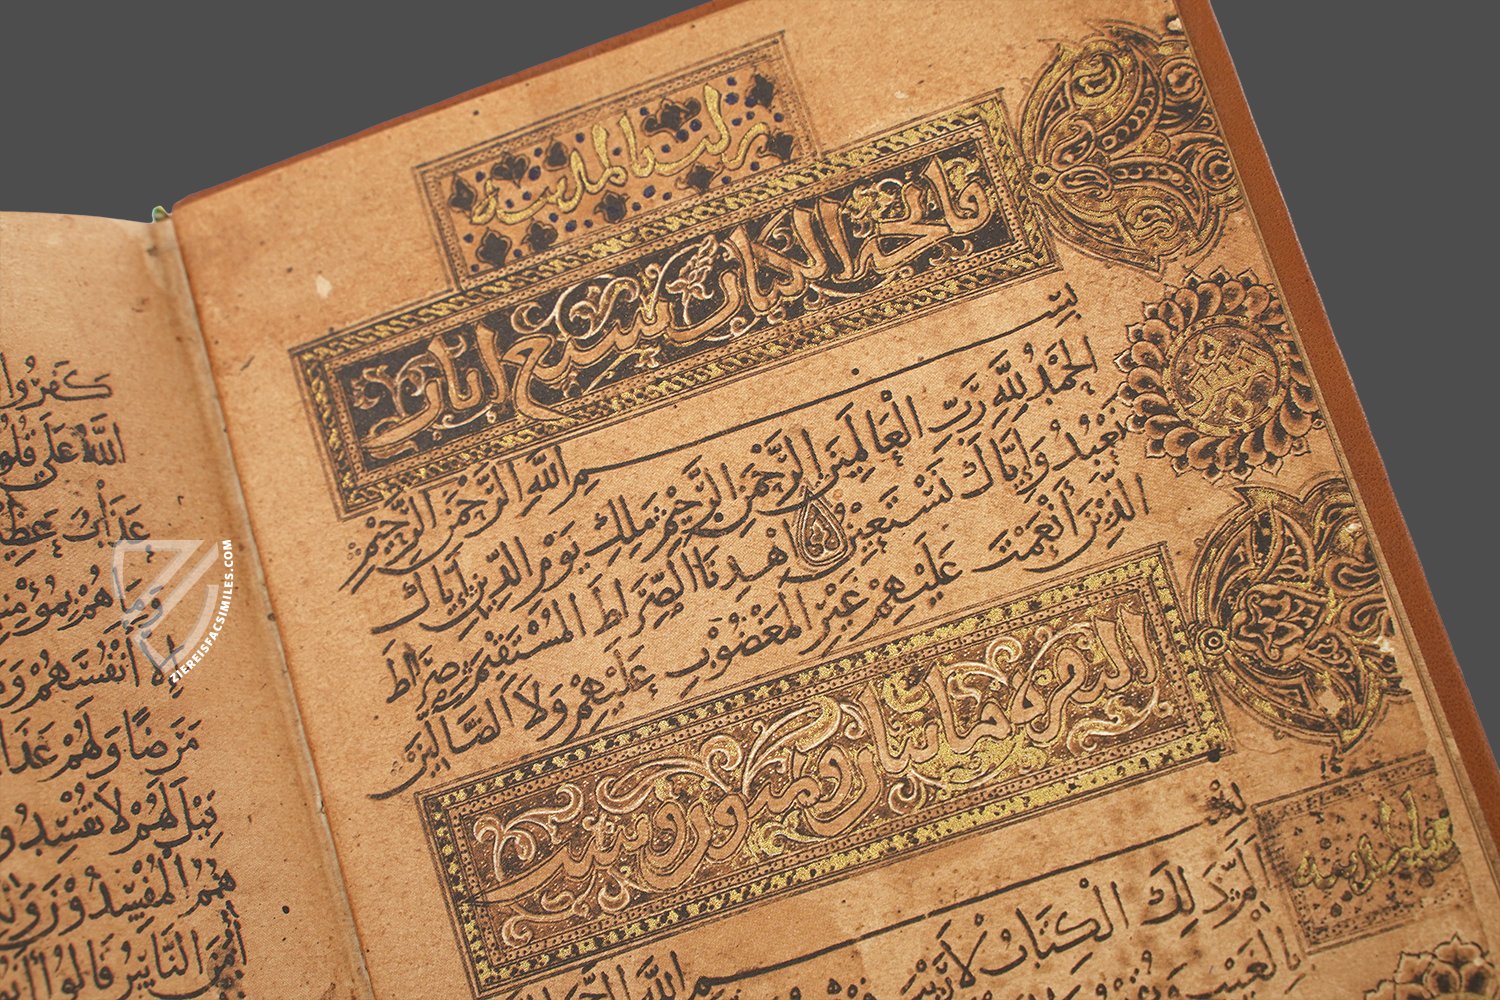 نزلت بالمدينة
فاتحة الكتاب سبع ايات
بِسْمِ اللَّهِ الرَّحْمَنِ الرَّحِيْمِ
الْحَمْدُ لِلَّهِ رَبِّ الْعَالَمِيْنَ الرَّحْمَنِ الرَّحِيْمِ مَلِكِ يَوْمِ الدِّيْنِ إِيَّاكَ
نَعْبُدُ وَإِيَّاكَ نَسْتَعِيْنُ اهْدِنَا الصِّرَاطَ الْمُسْتَقِيْمَ صِرَاطَ
الَّذِيْنَ أَنْعَمْتَ عَلَيْهِمْ غَيْرِ الْمَغْضُوْبِ عَلَيْهِمْ وَلَا الضَّالِّيْنَ
البقرة مايتان وثمنون وست
بِسْمِ اللَّهِ
الم ذَلِكَ الْكِتَابُ لَا رَيْبَ
بِالْغَيْبِ
كَفَرُوا
اللَّهُ عَلَى
عَذَابٌ
وَمَا هُمْ
إِلَّا أَنْفُسَهُمْ
مَرَضًا وَلَهُمْ
قِيْلَ لَهُمْ لَا تُفْسِدُو
هُمُ الْمُفْسِدُوْنَ
آمَنَ النَّاسُ قَالُوا
ZIEREISFACSIMILES.COM